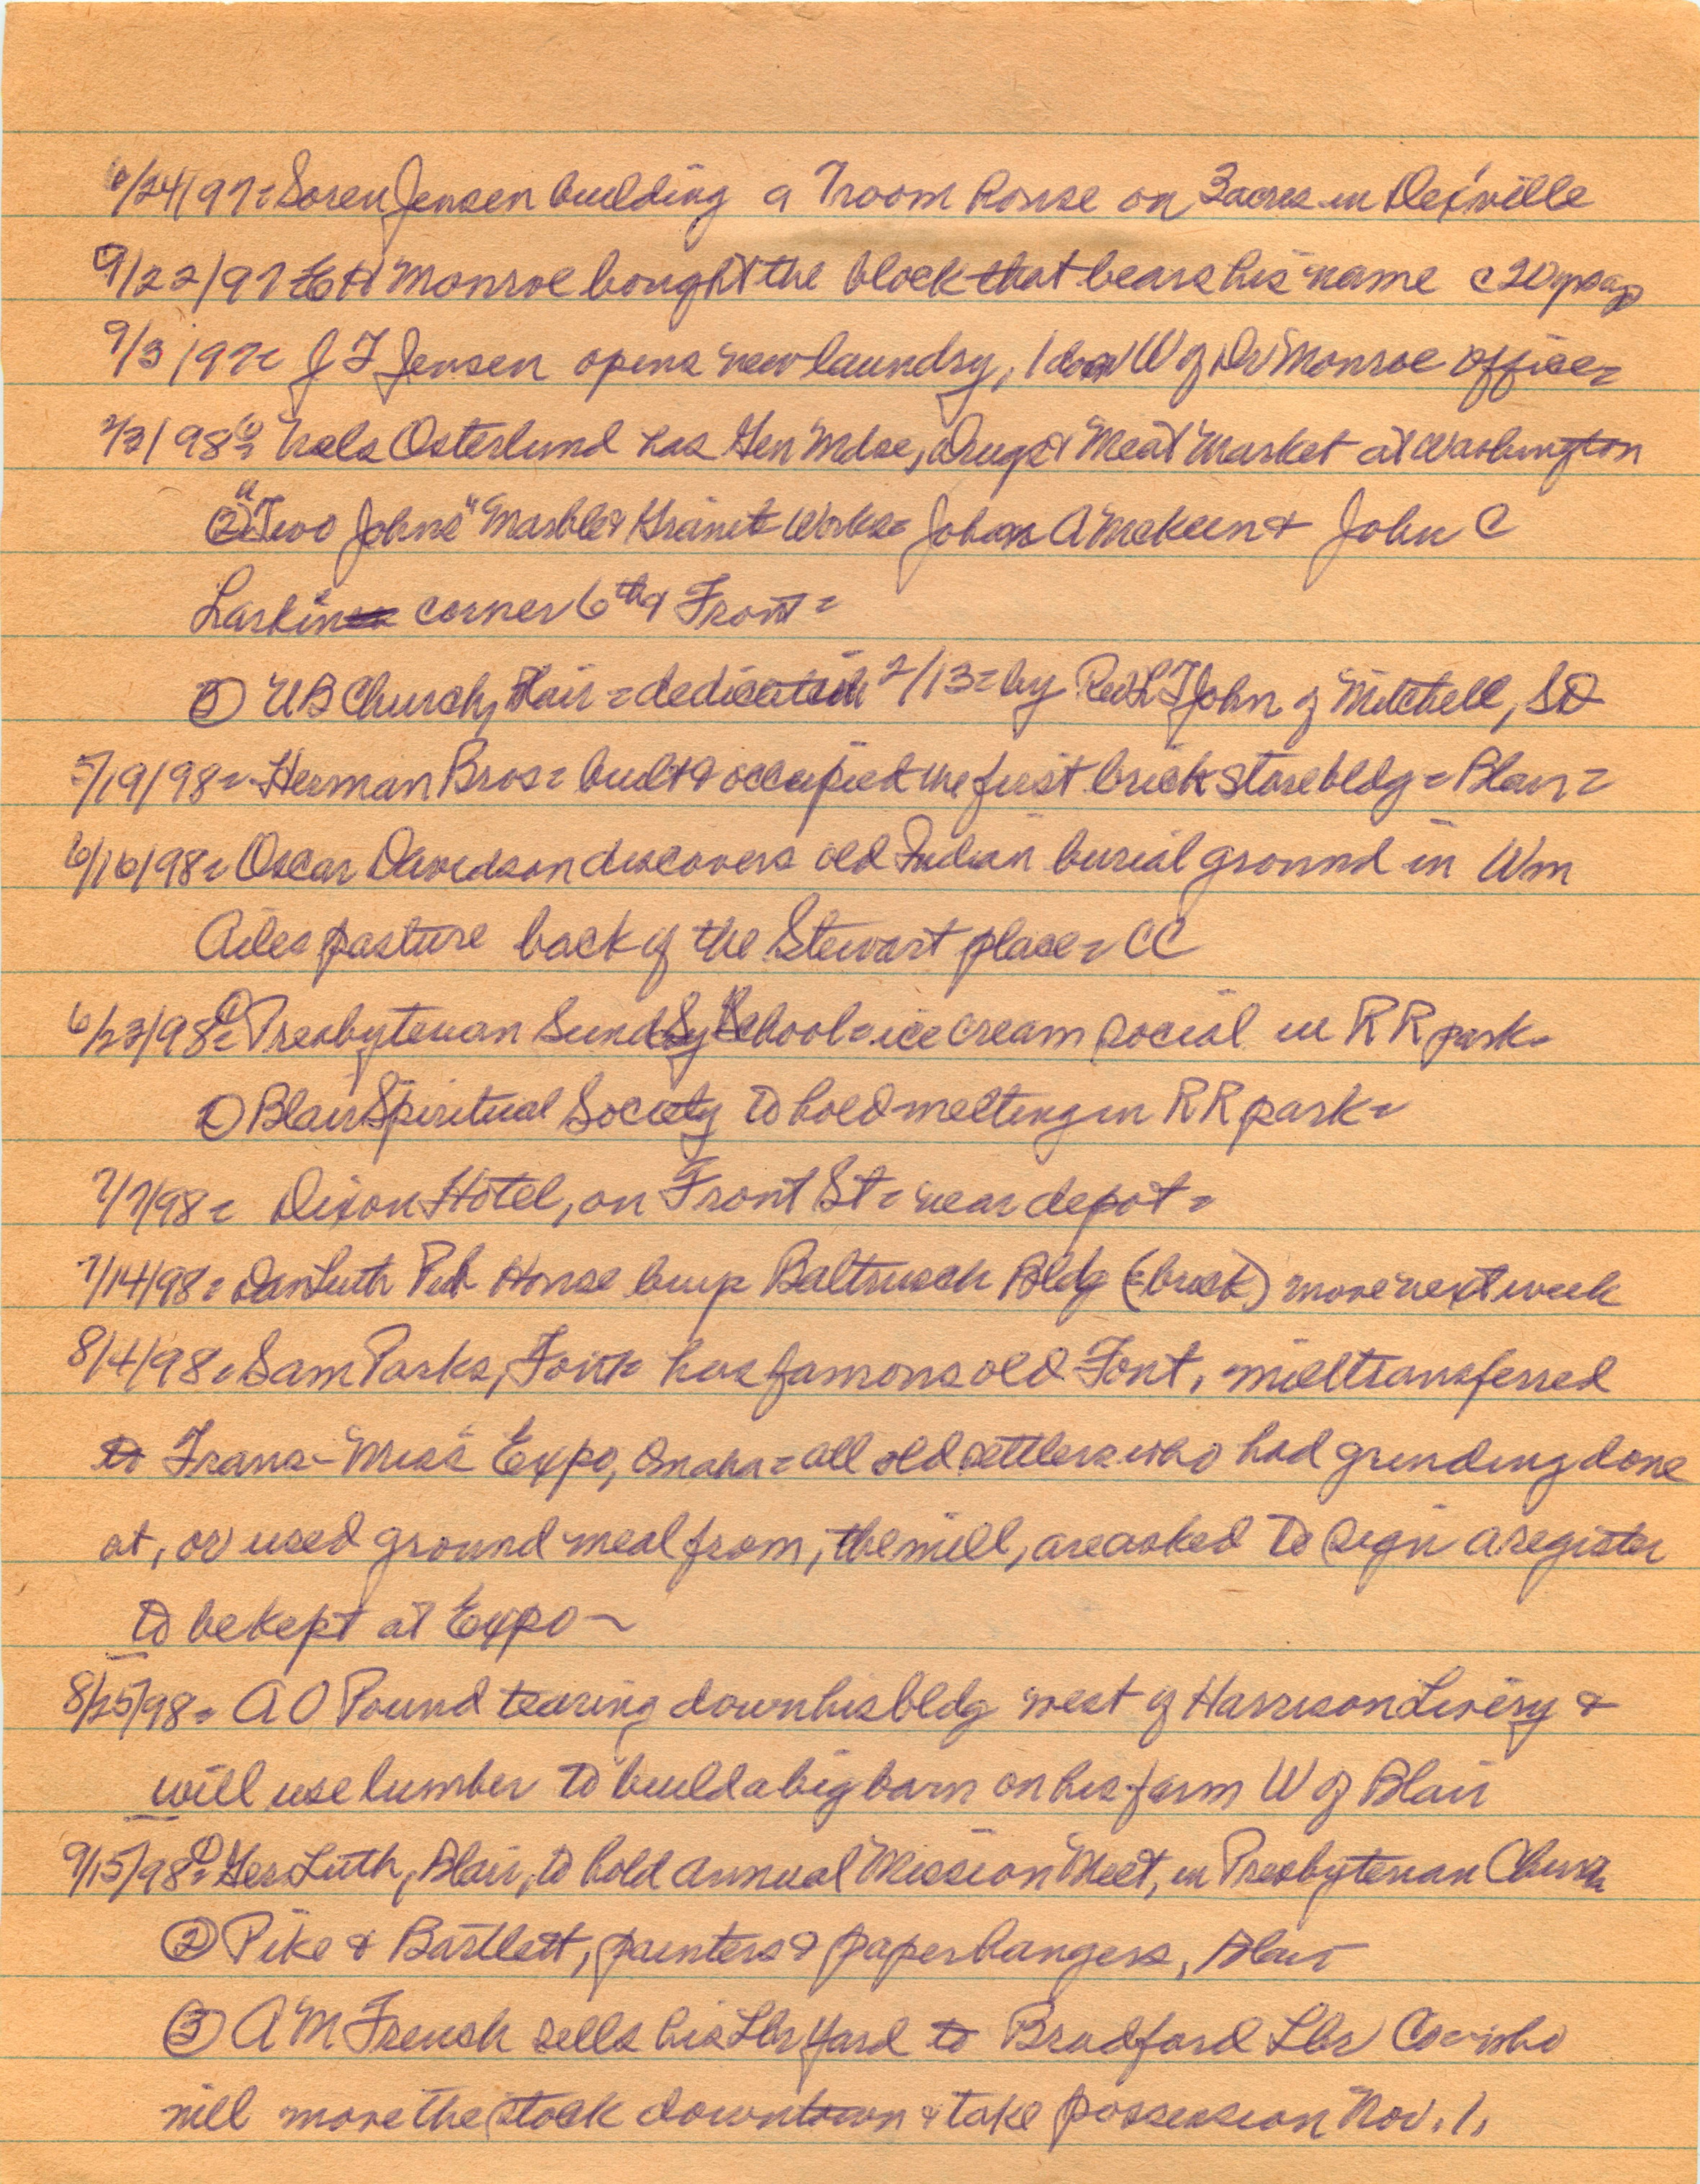 6/24/97= Soren Jensen building a 7 room house on 3 acres in Dexville
9/22/97 EH Monroe bought the block that bears his name c 20 yrs ago
9/3/97= J F Jensen opens new laundry, 1 door W of Dr Monroe office=
2/3/98= ① Nels Osterlund has Gen Mdse, Drugs & Meat Market at Washington
② "Two Johns" Marble & Granit Works= John A McKeen & John C
Larkin corner 6th & Front=
③ UB Church, Blair= dedication 2/13= by Rev L F John of Mitchell, SD
5/19/98= Herman Bros= built & occupied the first brick store bldg= Blair=
6/16/98= Oscar Davidson discovers old Indian burial ground in Wm
Ailes pasture back of the Stewart place= CC
6/23/98= ① Presbyterian Sunday School= ice cream social in RR park=
② Blair Spiritual Society to hold meeting in RR park=
7/7/98= Dixon Hotel, on Front St= near depot=
7/14/98= Dan Luth Pub House buys Baltrusch Bldg (brick) move next week
8/4/98= Sam Parks, has famous old Font. mill transferred
to Trans-Miss Expo, Omaha= all old settlers who had grinding done
at, or used ground meal from, the mill, are asked to sign a register
to be kept at Expo~
8/25/98= A O Pound tearing down his bldg west of Harrison Livery &
will use lumber to build a big barn on his farm W of Blair
9/15/98= ① Ger Luth, Blair, to hold annual Mission Meet, in Presbyterian Church
② Pike & Bartlett, painters & paperhangers, Blair
③ A M French sells his Lbr Yard to Bradford Lbr Co= who
will move the stock downtown & take possession Nov. 1.